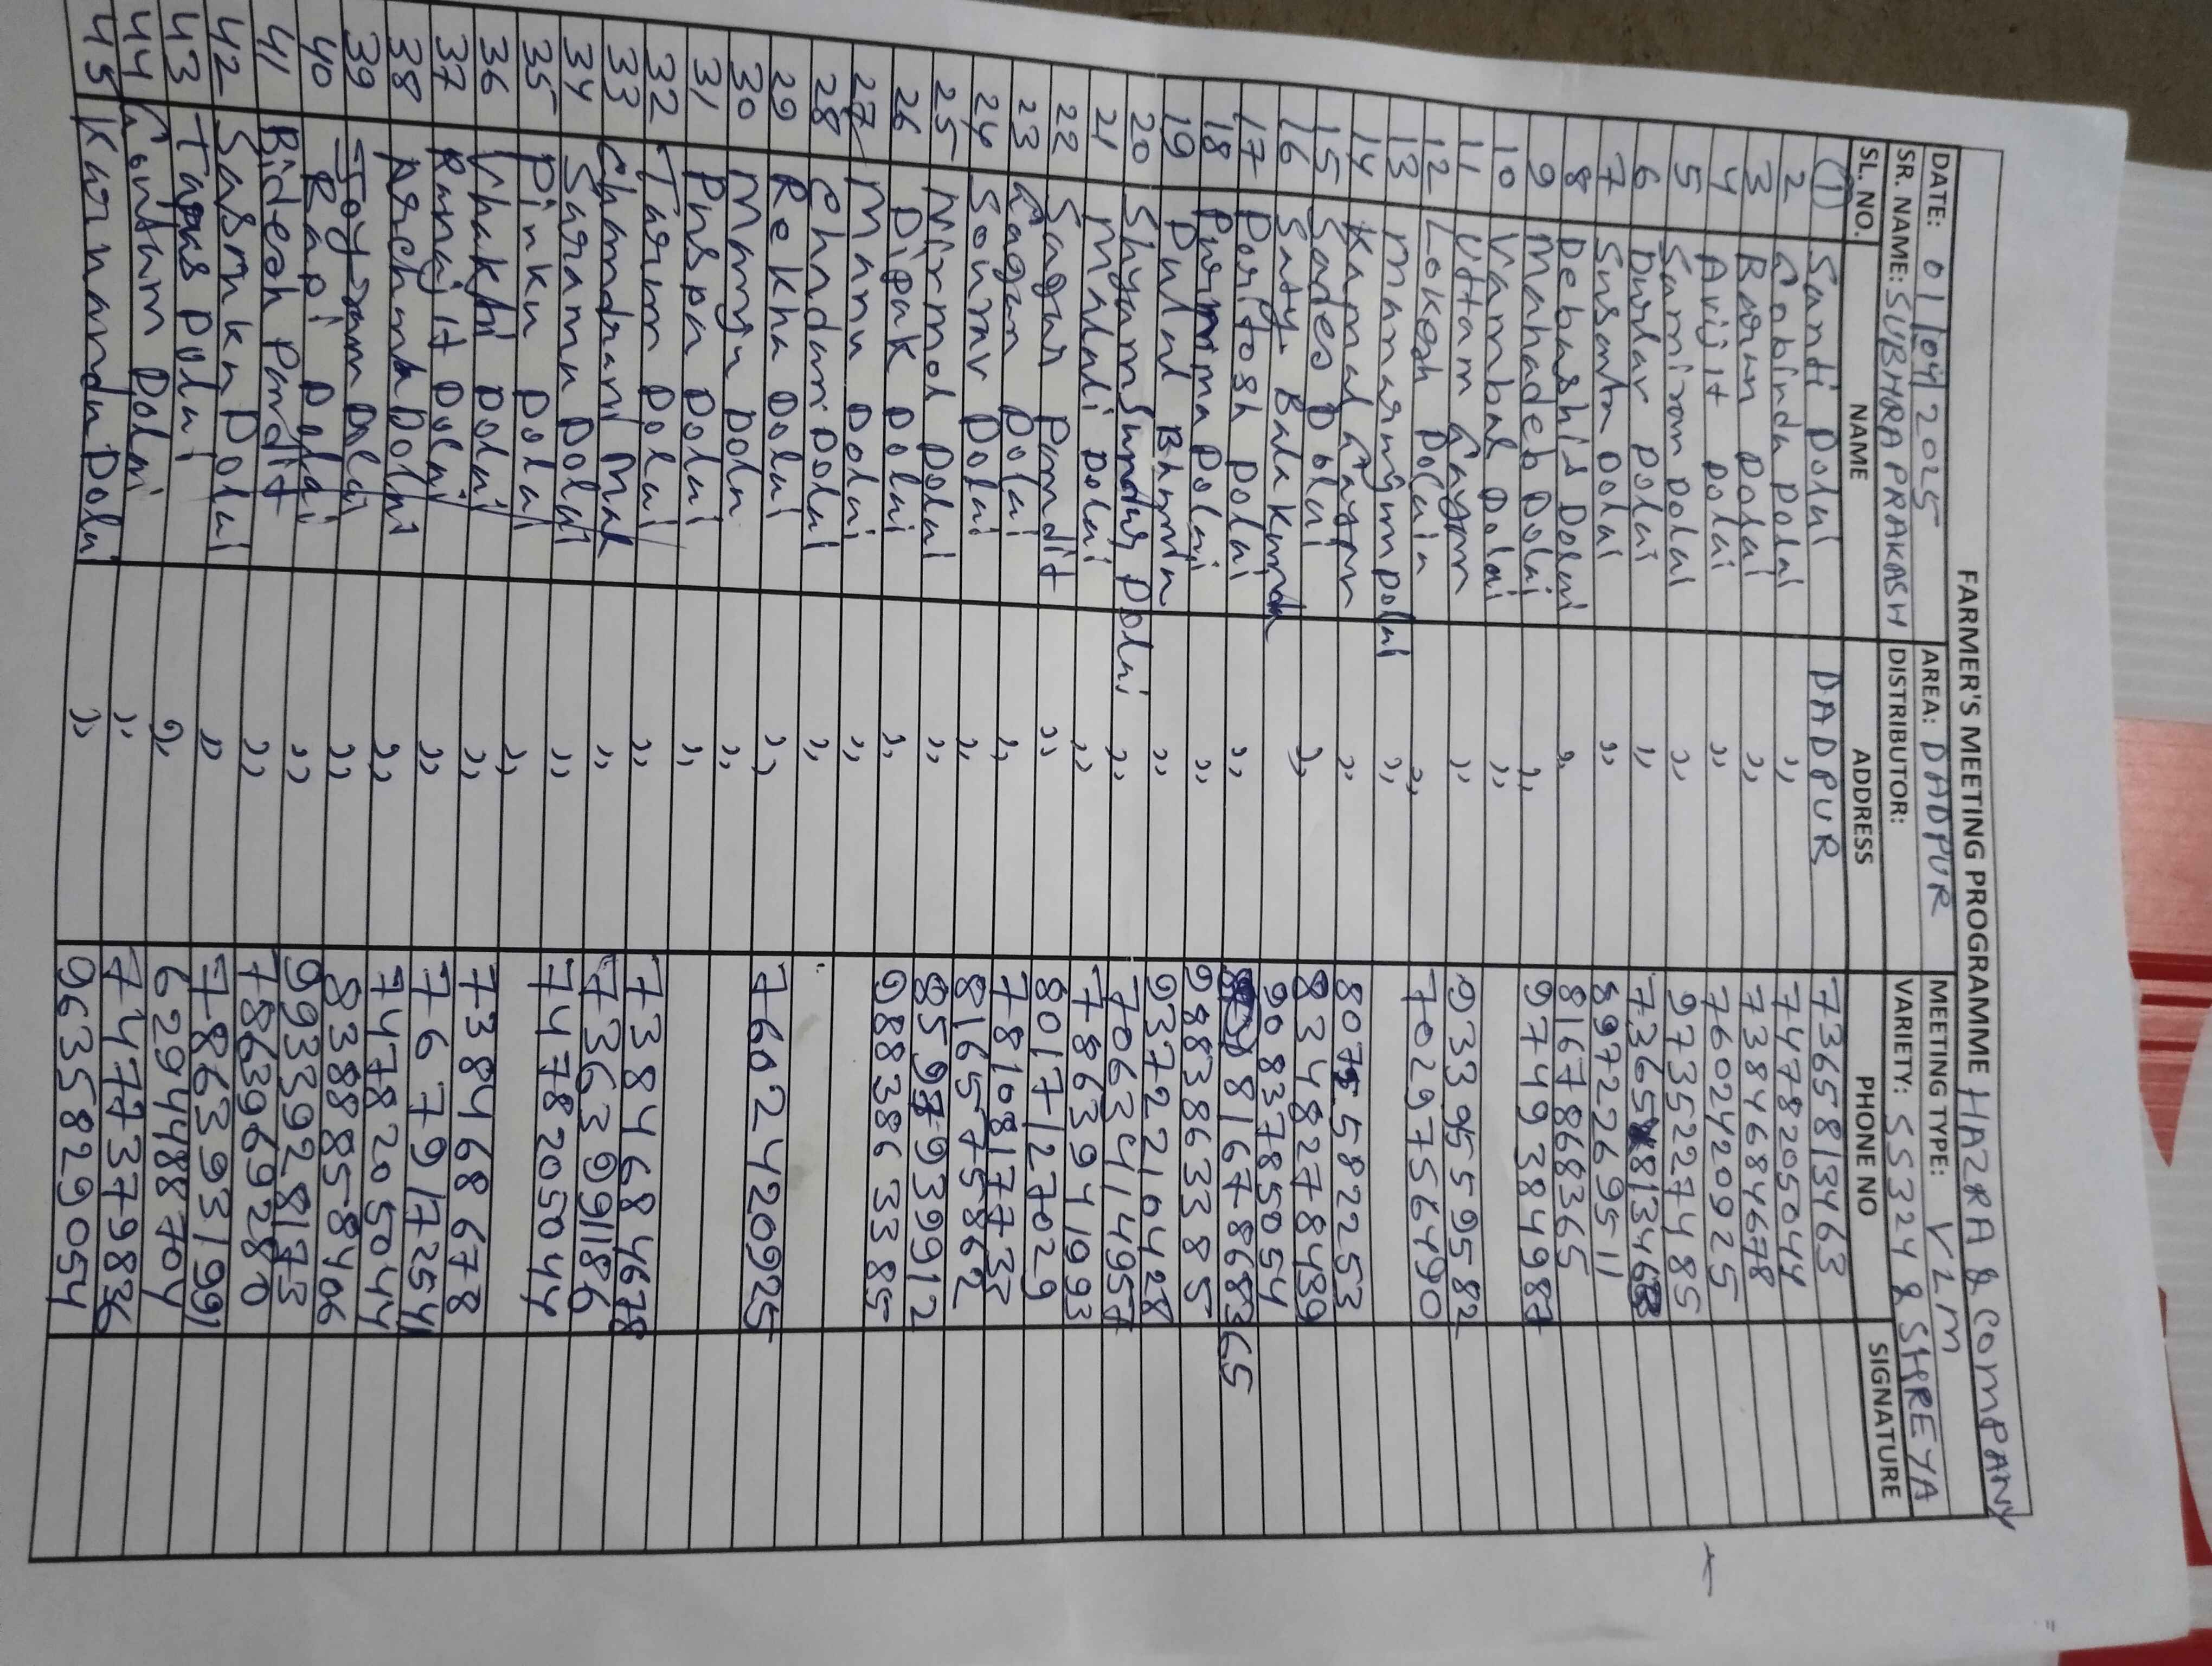 FARMER'S MEETING PROGRAMME HAZRA & COMPANY
DATE: 01/04/2025 AREA: DADPUR MEETING TYPE: V2M
SR. NAME: SUBHRA PRAKASH DISTRIBUTOR: VARIETY: SS324 & SHREYA
SL. NO. NAME ADDRESS PHONE NO SIGNATURE
1 Sandi Dolai DADPUR 7365813463
2 Gobinda Dolai ,, 7478205044
3 Dolai ,, 7384684678
4 Avijit Dolai ,, 7602420925
5 Saniram Dolai ,, 9735227485
6 Dular Dolai ,, 736581346
7 Susanta Dolai ,, 8972269511
8 Debashis Dolai ,, 8167868365
9 Mahadeb Dolai ,, 9749384987
10 Dolai ,,
11 Uttam Gayen ,, 9339559582
12 Lokesh Dolain ,, 7029756490
13 Manasingum Dolai ,,
14 Kamal Gayen ,, 8075582253
15 Sades Dolai ,, 8348278439
16 Satya Bala Kundu 9083785054
17 Paritosh Dolai ,, 8167868365
18 Purnima Dolai ,, 9883863385
19 Dulal Bhunia ,, 9372216428
20 Shyam Sundar Dolai ,, 7063414957
21 Malati Dolai ,, 7863941093
22 Sagar Pandit ,, 8017127029
23 Gagan Dolai ,, 7810817733
24 Sourav Dolai ,, 8165775862
25 Nirmol Dolai ,, 8597939912
26 Dipak Dolai ,, 9883863385
27 Manu Dolai ,,
28 Chandan Dolai ,,
29 Rekha Dolai ,, 7602420925
30 Manju Dolu ,,
31 Puspa Dolai ,,
32 Tarun Dolai ,, 7384684678
33 Chandrani Mal ,, 7363991186
34 Sarama Dolai ,, 7478205044
35 Pinku Dolai ,,
36 Dolai ,, 7384686678
37 Ranajit Dolai ,, 767917254
38 Archana Dolai ,, 7478205044
39 Joyram Dolai ,, 8388858406
40 Rapi Dolai ,, 9933928173
41 Bidesh Pandit ,, 7863969280
42 Sasanka Dolai ,, 7863939199
43 Tapas Dolai ,, 6294488704
44 Goutam Dolai ,, 7477379836
45 Karnanda Dolai ,, 9635829054